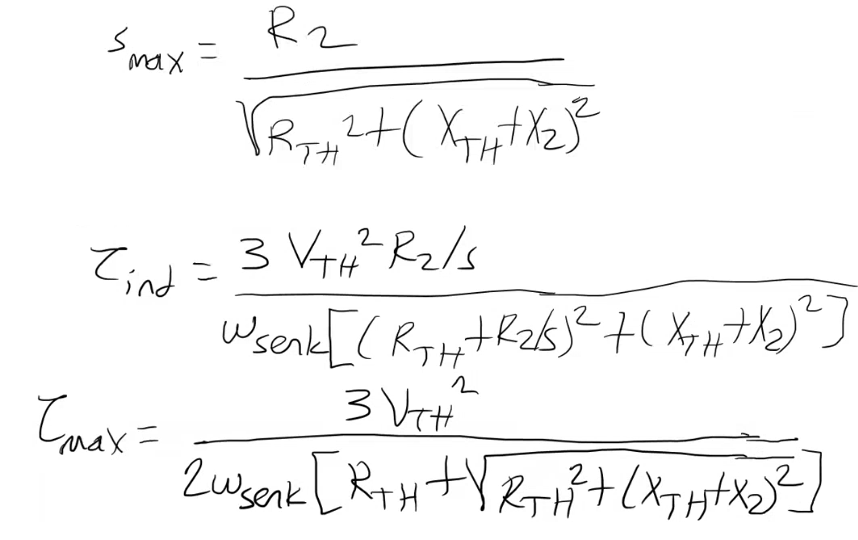 s_max = R_2 / √(R_TH^2 + (X_TH + X_2)^2)
τ_ind = 3 V_TH^2 R_2/s / ω_senk[(R_TH + R_2/s)^2 + (X_TH + X_2)^2]
τ_max = 3 V_TH^2 / 2ω_senk[R_TH + √(R_TH^2 + (X_TH + X_2)^2)]